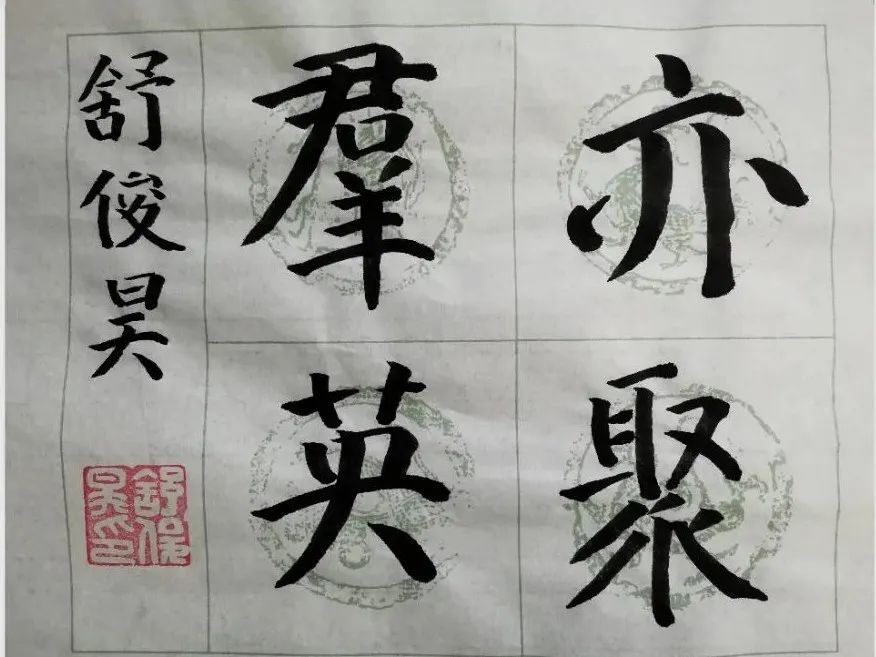 亦聚
羣英
舒俊昊
舒俊昊印